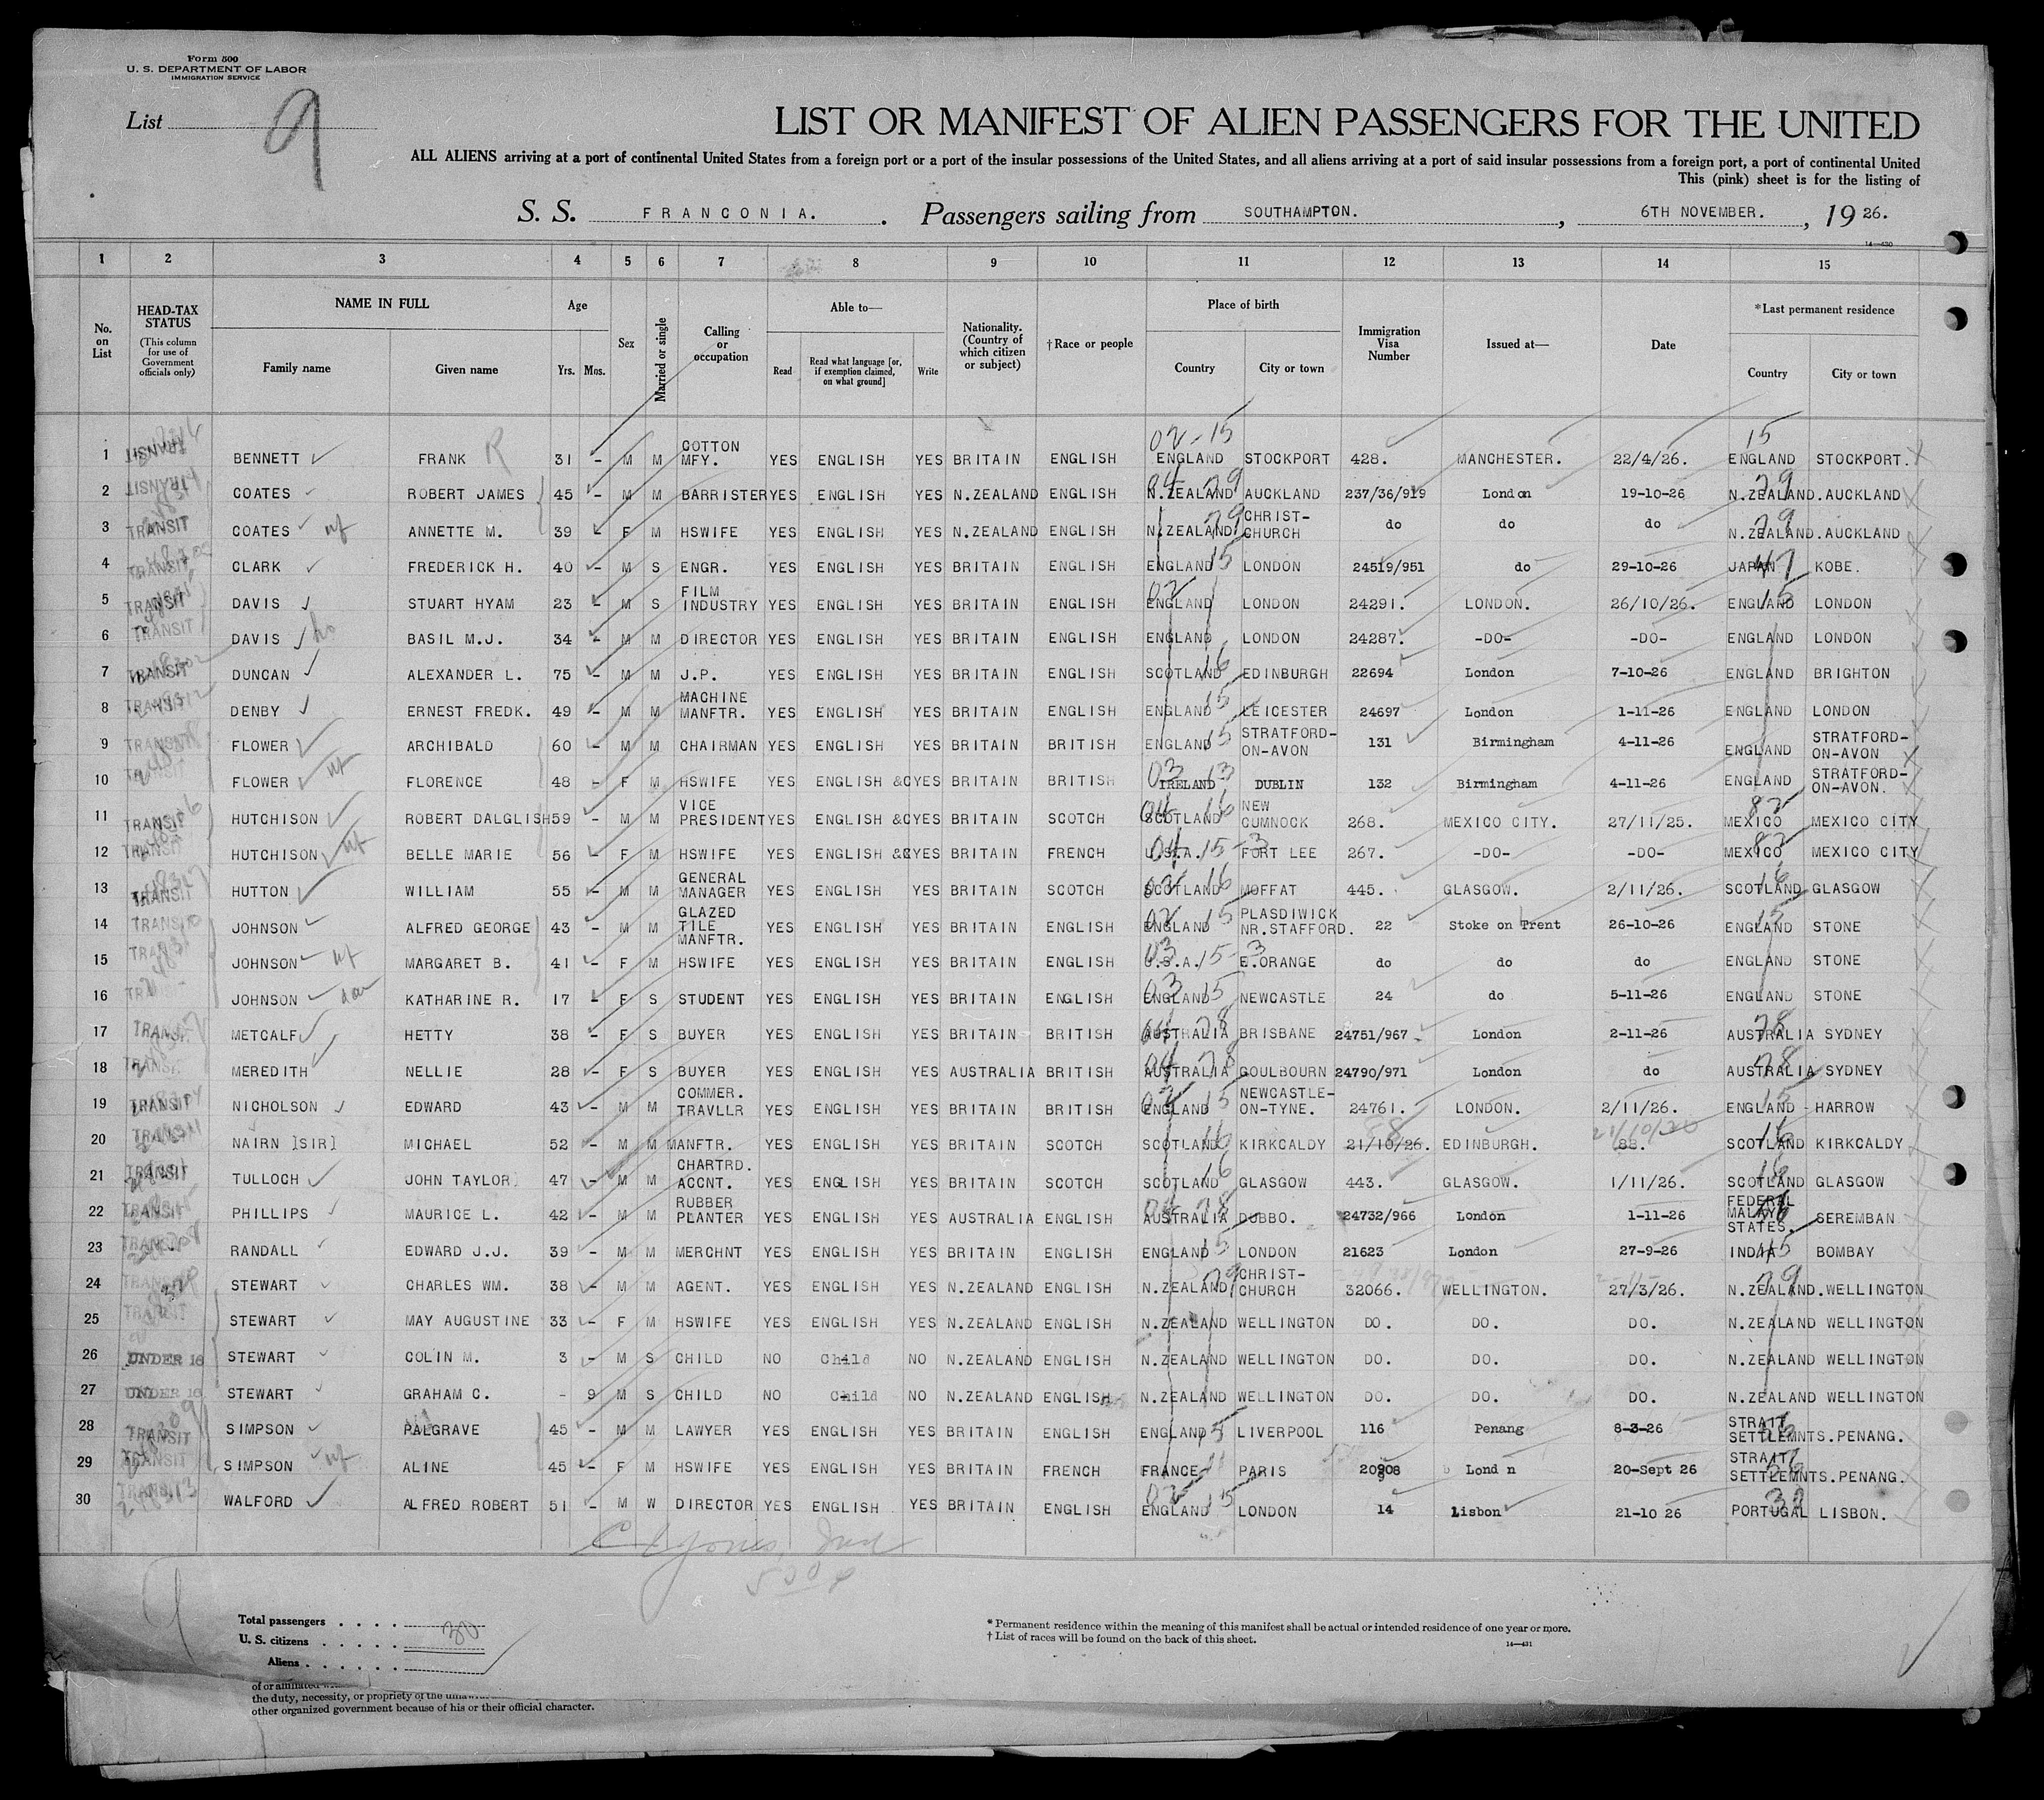 Form 500
U. S. DEPARTMENT OF LABOR
IMMIGRATION SERVICE
List 9
LIST OR MANIFEST OF ALIEN PASSENGERS FOR THE UNITED
ALL ALIENS arriving at a port of continental United States from a foreign port or a port of the insular possessions of the United States, and all aliens arriving at a port of said insular possessions from a foreign port, a port of continental United
This (pink) sheet is for the listing of
S. S. FRANCONIA. Passengers sailing from SOUTHAMPTON. , 6TH NOVEMBER. , 19 26.
14—430
1 2 3 4 5 6 7 8 9 10 11 12 13 14 15
No. on List
HEAD-TAX STATUS (This column for use of Government officials only)
NAME IN FULL Family name Given name
Age Yrs. Mos.
Sex
Married or single
Calling or occupation
Able to— Read Read what language [or, if exemption claimed, on what ground] Write
Nationality. (Country of which citizen or subject)
†Race or people
Place of birth Country City or town
Immigration Visa Number
Issued at—
Date
*Last permanent residence Country City or town
1 TRANSIT BENNETT FRANK R 31 - M M COTTON MFY. YES ENGLISH YES BRITAIN ENGLISH ENGLAND STOCKPORT 428. MANCHESTER. 22/4/26. ENGLAND STOCKPORT.
2 TRANSIT COATES ROBERT JAMES 45 - M M BARRISTER YES ENGLISH YES N.ZEALAND ENGLISH N.ZEALAND AUCKLAND 237/36/919 London 19-10-26 N.ZEALAND. AUCKLAND
3 TRANSIT COATES wf ANNETTE M. 39 F M HSWIFE YES ENGLISH YES N.ZEALAND ENGLISH N.ZEALAND CHRIST-CHURCH do do do N.ZEALAND. AUCKLAND
4 TRANSIT CLARK FREDERICK H. 40 - M S ENGR. YES ENGLISH YES BRITAIN ENGLISH ENGLAND LONDON 24519/951 do 29-10-26 JAPAN KOBE.
5 TRANSIT DAVIS STUART HYAM 23 - M S FILM INDUSTRY YES ENGLISH YES BRITAIN ENGLISH ENGLAND LONDON 24291. LONDON. 26/10/26. ENGLAND LONDON
6 TRANSIT DAVIS BASIL M.J. 34 - M M DIRECTOR YES ENGLISH YES BRITAIN ENGLISH ENGLAND LONDON 24287. -DO- -DO- ENGLAND LONDON
7 TRANSIT DUNCAN ALEXANDER L. 75 - M M J.P. YES ENGLISH YES BRITAIN ENGLISH SCOTLAND EDINBURGH 22694 London 7-10-26 ENGLAND BRIGHTON
8 TRANSIT DENBY ERNEST FREDK. 49 - M M MACHINE MANFTR. YES ENGLISH YES BRITAIN ENGLISH ENGLAND LEICESTER 24697 London 1-11-26 ENGLAND LONDON
9 TRANSIT FLOWER ARCHIBALD 60 - M M CHAIRMAN YES ENGLISH YES BRITAIN BRITISH ENGLAND STRATFORD-ON-AVON 131 Birmingham 4-11-26 ENGLAND STRATFORD-ON-AVON
10 TRANSIT FLOWER wf FLORENCE 48 - F M HSWIFE YES ENGLISH &C YES BRITAIN BRITISH IRELAND DUBLIN 132 Birmingham 4-11-26 ENGLAND STRATFORD-ON-AVON.
11 TRANSIT HUTCHISON ROBERT DALGLISH 59 - M M VICE PRESIDENT YES ENGLISH &C YES BRITAIN SCOTCH SCOTLAND NEW CUMNOCK 268. MEXICO CITY. 27/11/25. MEXICO MEXICO CITY
12 TRANSIT HUTCHISON wf BELLE MARIE 56 - F M HSWIFE YES ENGLISH &C YES BRITAIN FRENCH U.S.A. FORT LEE 267. -DO- -DO- MEXICO MEXICO CITY
13 TRANSIT HUTTON WILLIAM 55 - M M GENERAL MANAGER YES ENGLISH YES BRITAIN SCOTCH SCOTLAND MOFFAT 445. GLASGOW. 2/11/26. SCOTLAND GLASGOW
14 TRANSIT JOHNSON ALFRED GEORGE 43 - M M GLAZED TILE MANFTR. YES ENGLISH YES BRITAIN ENGLISH ENGLAND PLASDIWICK NR.STAFFORD. 22 Stoke on Trent 26-10-26 ENGLAND STONE
15 JOHNSON wf MARGARET B. 41 - F M HSWIFE YES ENGLISH YES BRITAIN ENGLISH U.S.A. E.ORANGE do do do ENGLAND STONE
16 JOHNSON dau KATHARINE R. 17 - F S STUDENT YES ENGLISH YES BRITAIN ENGLISH ENGLAND NEWCASTLE 24 do 5-11-26 ENGLAND STONE
17 TRANSIT METCALF HETTY 38 - F S BUYER YES ENGLISH YES BRITAIN BRITISH AUSTRALIA BRISBANE 24751/967 London 2-11-26 AUSTRALIA SYDNEY
18 TRANSIT MEREDITH NELLIE 28 - F S BUYER YES ENGLISH YES AUSTRALIA BRITISH AUSTRALIA GOULBOURN 24790/971 London do AUSTRALIA SYDNEY
19 TRANSIT NICHOLSON EDWARD 43 - M M COMMER. TRAVLLR YES ENGLISH YES BRITAIN BRITISH ENGLAND NEWCASTLE-ON-TYNE. 24761. LONDON. 2/11/26. ENGLAND - HARROW
20 TRANSIT NAIRN ]SIR] MICHAEL 52 - M M MANFTR. YES ENGLISH YES BRITAIN SCOTCH SCOTLAND KIRKCALDY 21/10/26. 88 EDINBURGH. 88. 21/10/26 SCOTLAND KIRKCALDY
21 TRANSIT TULLOCH JOHN TAYLOR 47 - M M CHARTRD. ACCNT. YES ENGLISH YES BRITAIN SCOTCH SCOTLAND GLASGOW 443. GLASGOW. 1/11/26. SCOTLAND GLASGOW
22 TRANSIT PHILLIPS MAURICE L. 42 - M M RUBBER PLANTER YES ENGLISH YES AUSTRALIA ENGLISH AUSTRALIA DUBBO. 24732/966 London 1-11-26 FEDERAL MALAY STATES. SEREMBAN
23 TRANSIT RANDALL EDWARD J.J. 39 - M M MERCHNT YES ENGLISH YES BRITAIN ENGLISH ENGLAND LONDON 21623 London 27-9-26 INDIA BOMBAY
24 TRANSIT STEWART CHARLES WM. 38 - M M AGENT. YES ENGLISH YES N.ZEALAND ENGLISH N.ZEALAND CHRIST-CHURCH 32066. WELLINGTON. 27/3/26. N.ZEALAND. WELLINGTON
25 TRANSIT STEWART MAY AUGUSTINE 33 - F M HSWIFE YES ENGLISH YES N.ZEALAND ENGLISH N.ZEALAND WELLINGTON DO. DO. DO. N.ZEALAND WELLINGTON
26 UNDER 16 STEWART COLIN M. 3 - M S CHILD NO Child NO N.ZEALAND ENGLISH N.ZEALAND WELLINGTON DO. DO. DO. N.ZEALAND WELLINGTON
27 UNDER 16 STEWART GRAHAM C. - 9 M S CHILD NO Child NO N.ZEALAND ENGLISH N.ZEALAND WELLINGTON DO. DO. DO. N.ZEALAND WELLINGTON
28 TRANSIT SIMPSON PALGRAVE 45 - M M LAWYER YES ENGLISH YES BRITAIN ENGLISH ENGLAND LIVERPOOL 116 Penang 8-3-26 STRAIT SETTLEMNTS. PENANG.
29 TRANSIT SIMPSON wf ALINE 45 - F M HSWIFE YES ENGLISH YES BRITAIN FRENCH FRANCE PARIS 20908 Lond n 20-Sept 26 STRAIT SETTLEMNTS. PENANG.
30 TRANSIT WALFORD ALFRED ROBERT 51 - M W DIRECTOR YES ENGLISH YES BRITAIN ENGLISH ENGLAND LONDON 14 Lisbon 21-10 26 PORTUGAL LISBON.
9
Total passengers . . . . 30
U. S. citizens . . . . .
Aliens . . . . . .
* Permanent residence within the meaning of this manifest shall be actual or intended residence of one year or more.
† List of races will be found on the back of this sheet.
14—431
the duty, necessity, or propriety of the
other organized government because of his or their official character.